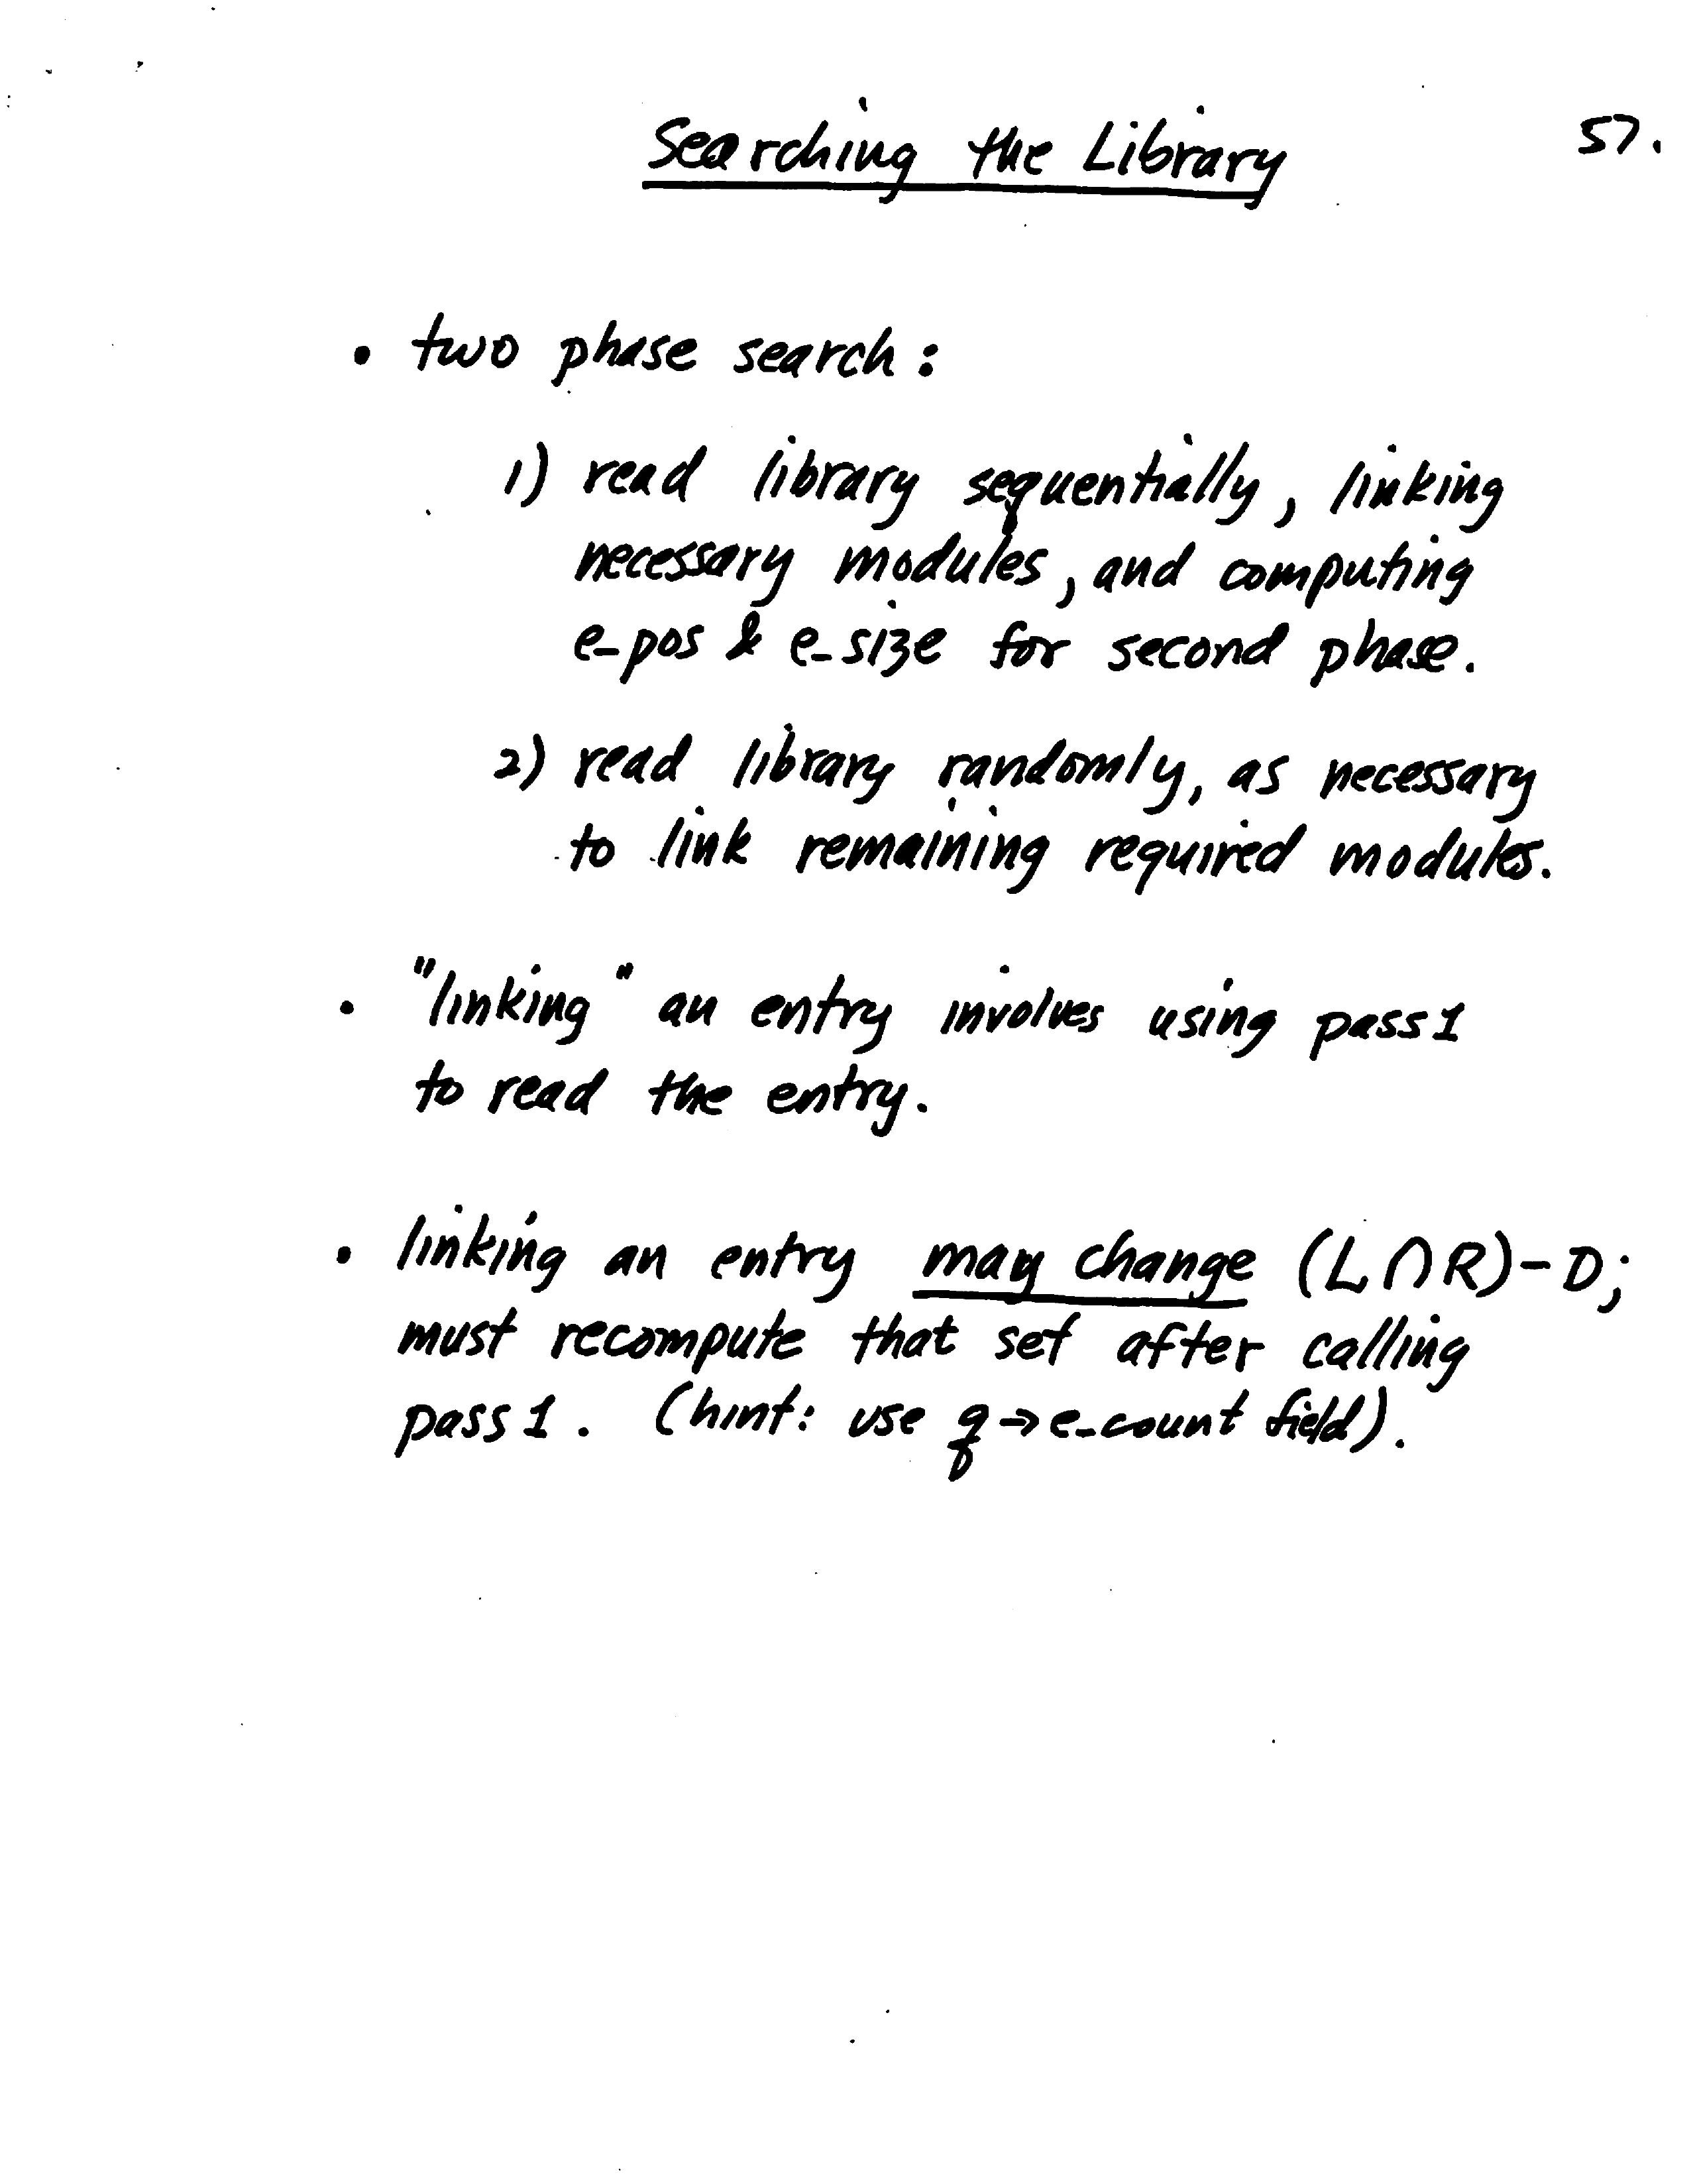 Searching the Library
57.
• two phase search:
1) read library sequentially, linking
necessary modules, and computing
e_pos & e_size for second phase.
2) read library randomly, as necessary
to link remaining required modules.
• "linking" an entry involves using pass1
to read the entry.
• linking an entry may change (L∩R)-D;
must recompute that set after calling
pass1. (hint: use q→e_count field).